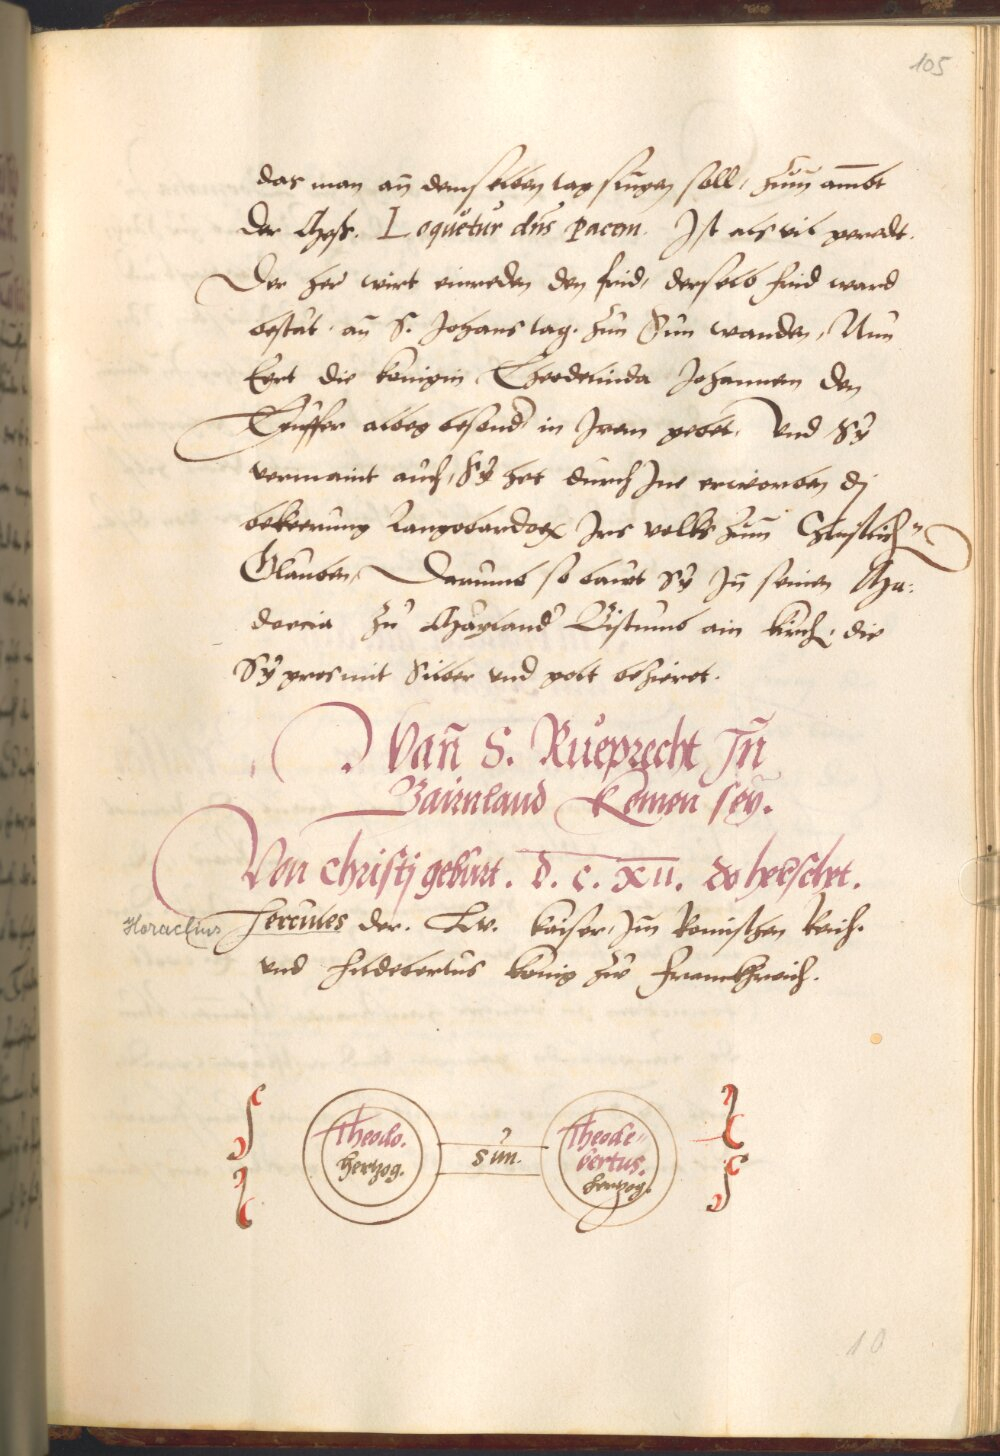 105
das man an̄ demselben tag singen soll, zum ambt
der Mess. Loquetur dn̄s pacem. Ist als vil geredt.
Der her wirt einreden den frid, derselb frid ward
bestat. an̄ S. Johans tag. zun Sun wanden, Nun
Eert die konigin Theodelinda Johannem den
Tauffer albeg besond in Irem gebet. Und Sÿ
vermaint auch, Sÿ het durch Ine erworben dj
bekerung Langobardorx Irs volks zum Christlich"
Glauben, Darumb so bawt Sÿ In̄ seinen
zu Mayland Bistumb ain kirch, die
Sÿ gros mit Silber vnd golt bezieret.
Wan̄ S. Rueprecht In̄
Bairnland komen sey.
Von Christj geburt. d. c. xii. do herschet.
Horaclius Hercules der. Lv. kaiser, Im Romischen Reich.
vnd Hildebertus konig zw Franckhreich.
Theodo.
hertzog.
sun.
Theode=
bertus.
hertzog.
10